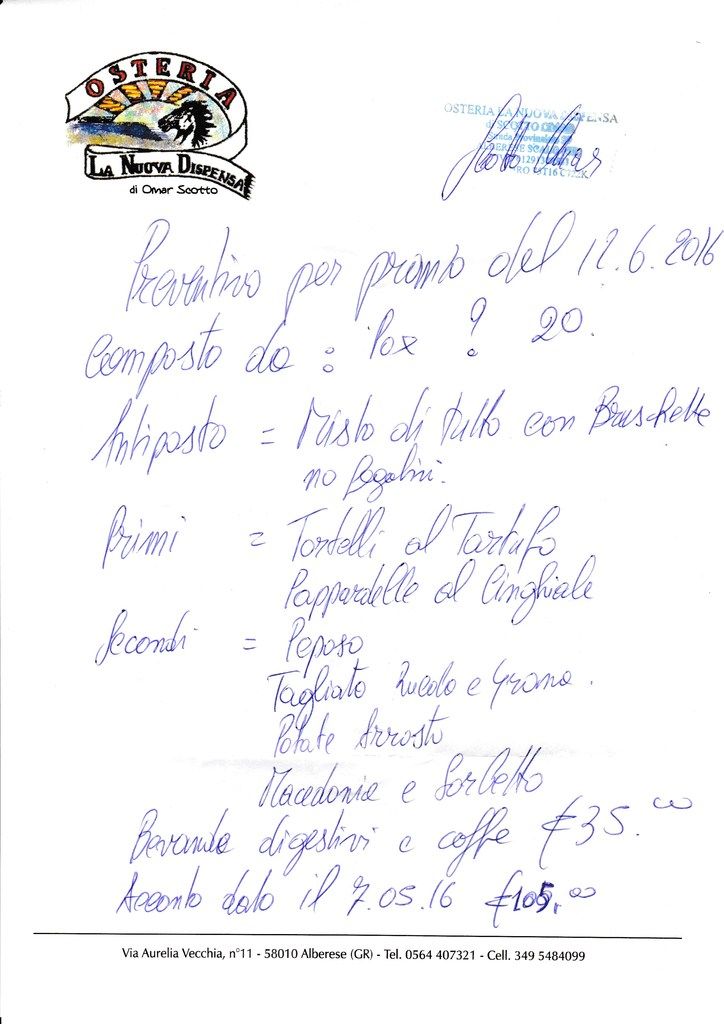 OSTERIA
LA NUOVA DISPENSA
di Omar Scotto
OSTERIA LA NUOVA DISPENSA
di SCOTTO OMAR
Preventivo per pranzo del 12.6.2016
Composto da : Pax ? 20.
Antipasto = Misto di tutto con Bruschette
no fegatini.
Primi = Tortelli al Tartufo
Pappardelle al Cinghiale
Secondi = Peposo
Tagliata Rucola e Grana.
Patate Arrosto
Macedonia e Sorbetto
Bevande digestivi e caffe €35.00
Acconto dato il 7.05.16 €105,00
Via Aurelia Vecchia, n°11 - 58010 Alberese (GR) - Tel. 0564 407321 - Cell. 349 5484099